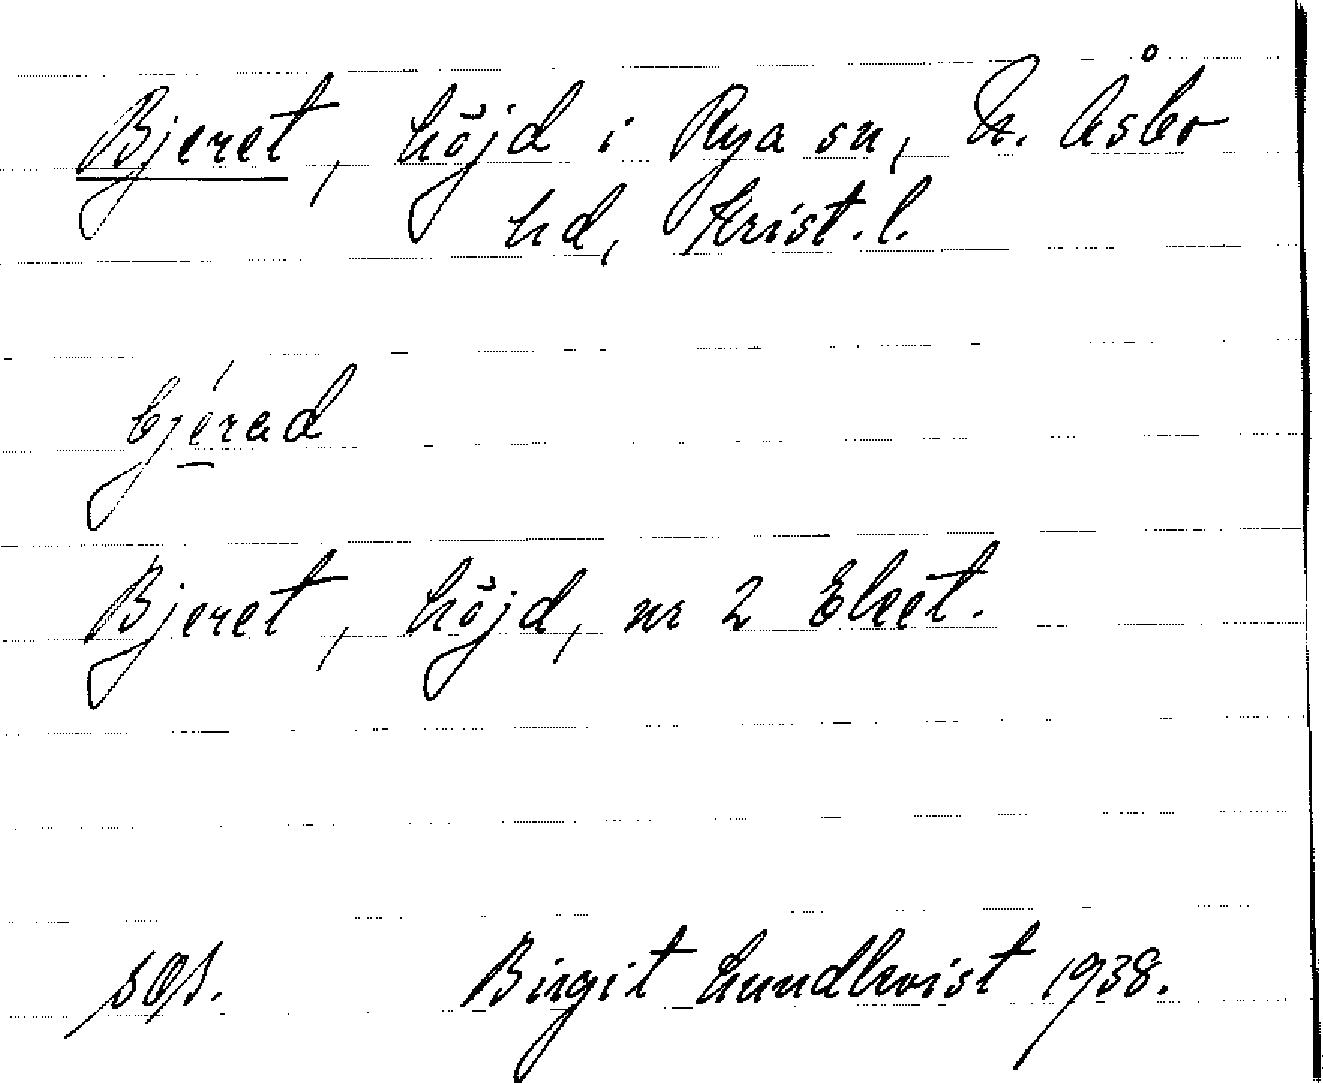 Bjeret, höjd i Rya sn, N. Åsbo
hd, Krist. l.
bjérad
Bjeret, höjd, nr 2 Eket.
sgs. Birgit Lundkvist 1938.